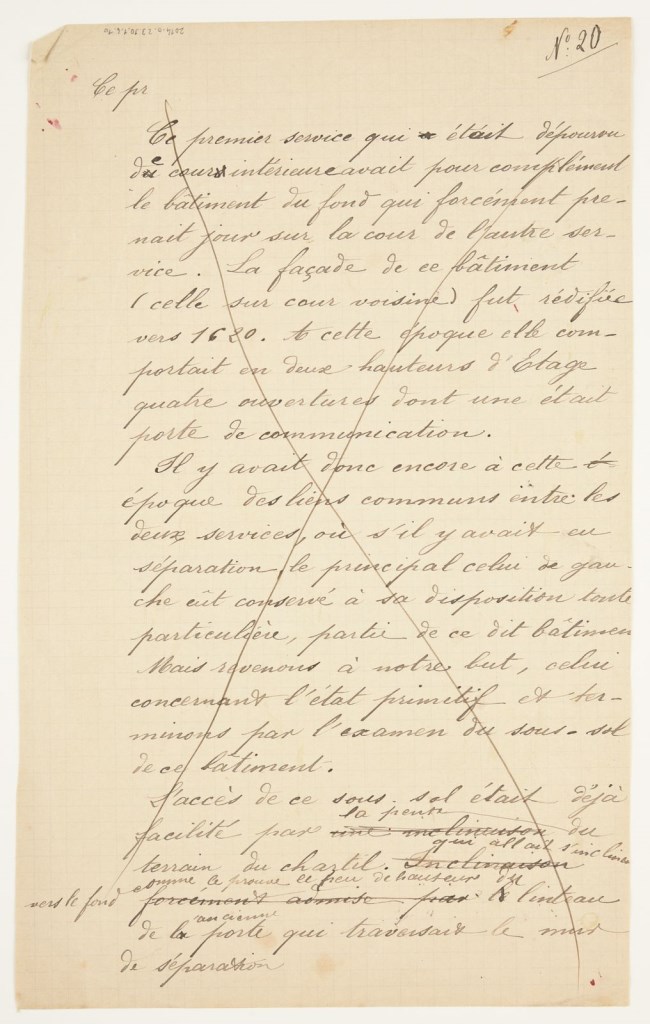 Nº 20
Ce pr
Ce premier service qui était dépourvu
de cour intérieure avait pour complément
le bâtiment du fond qui forcément pre-
nait jour sur la cour de l'autre ser-
vice. La façade de ce bâtiment
(celle sur cour voisine) fut rédifiée
vers 1620. A cette époque elle com-
portait en deux hauteurs d'Etage
quatre ouvertures dont une était
porte de communication.
Il y avait donc encore à cette é
époque des liens communs entre les
deux services, où s'il y avait eu
séparation, le principal celui de gau-
che eût conservé à sa disposition toute
particulière, partie de ce dit bâtimen
Mais revenons à notre but, celui
concernant l'état primitif et ter-
minons par l'examen du sous-sol
de ce bâtiment.
L'accès de ce sous-sol était déjà
la pente
facilité par une inclinaison du
qui allait s'inclinan
terrain du chartil. Inclinaison
comme le prouve le peu de hauteur du
vers le fond forcément admise par le linteau
ancienne
de la porte qui traversait le mur
de séparation